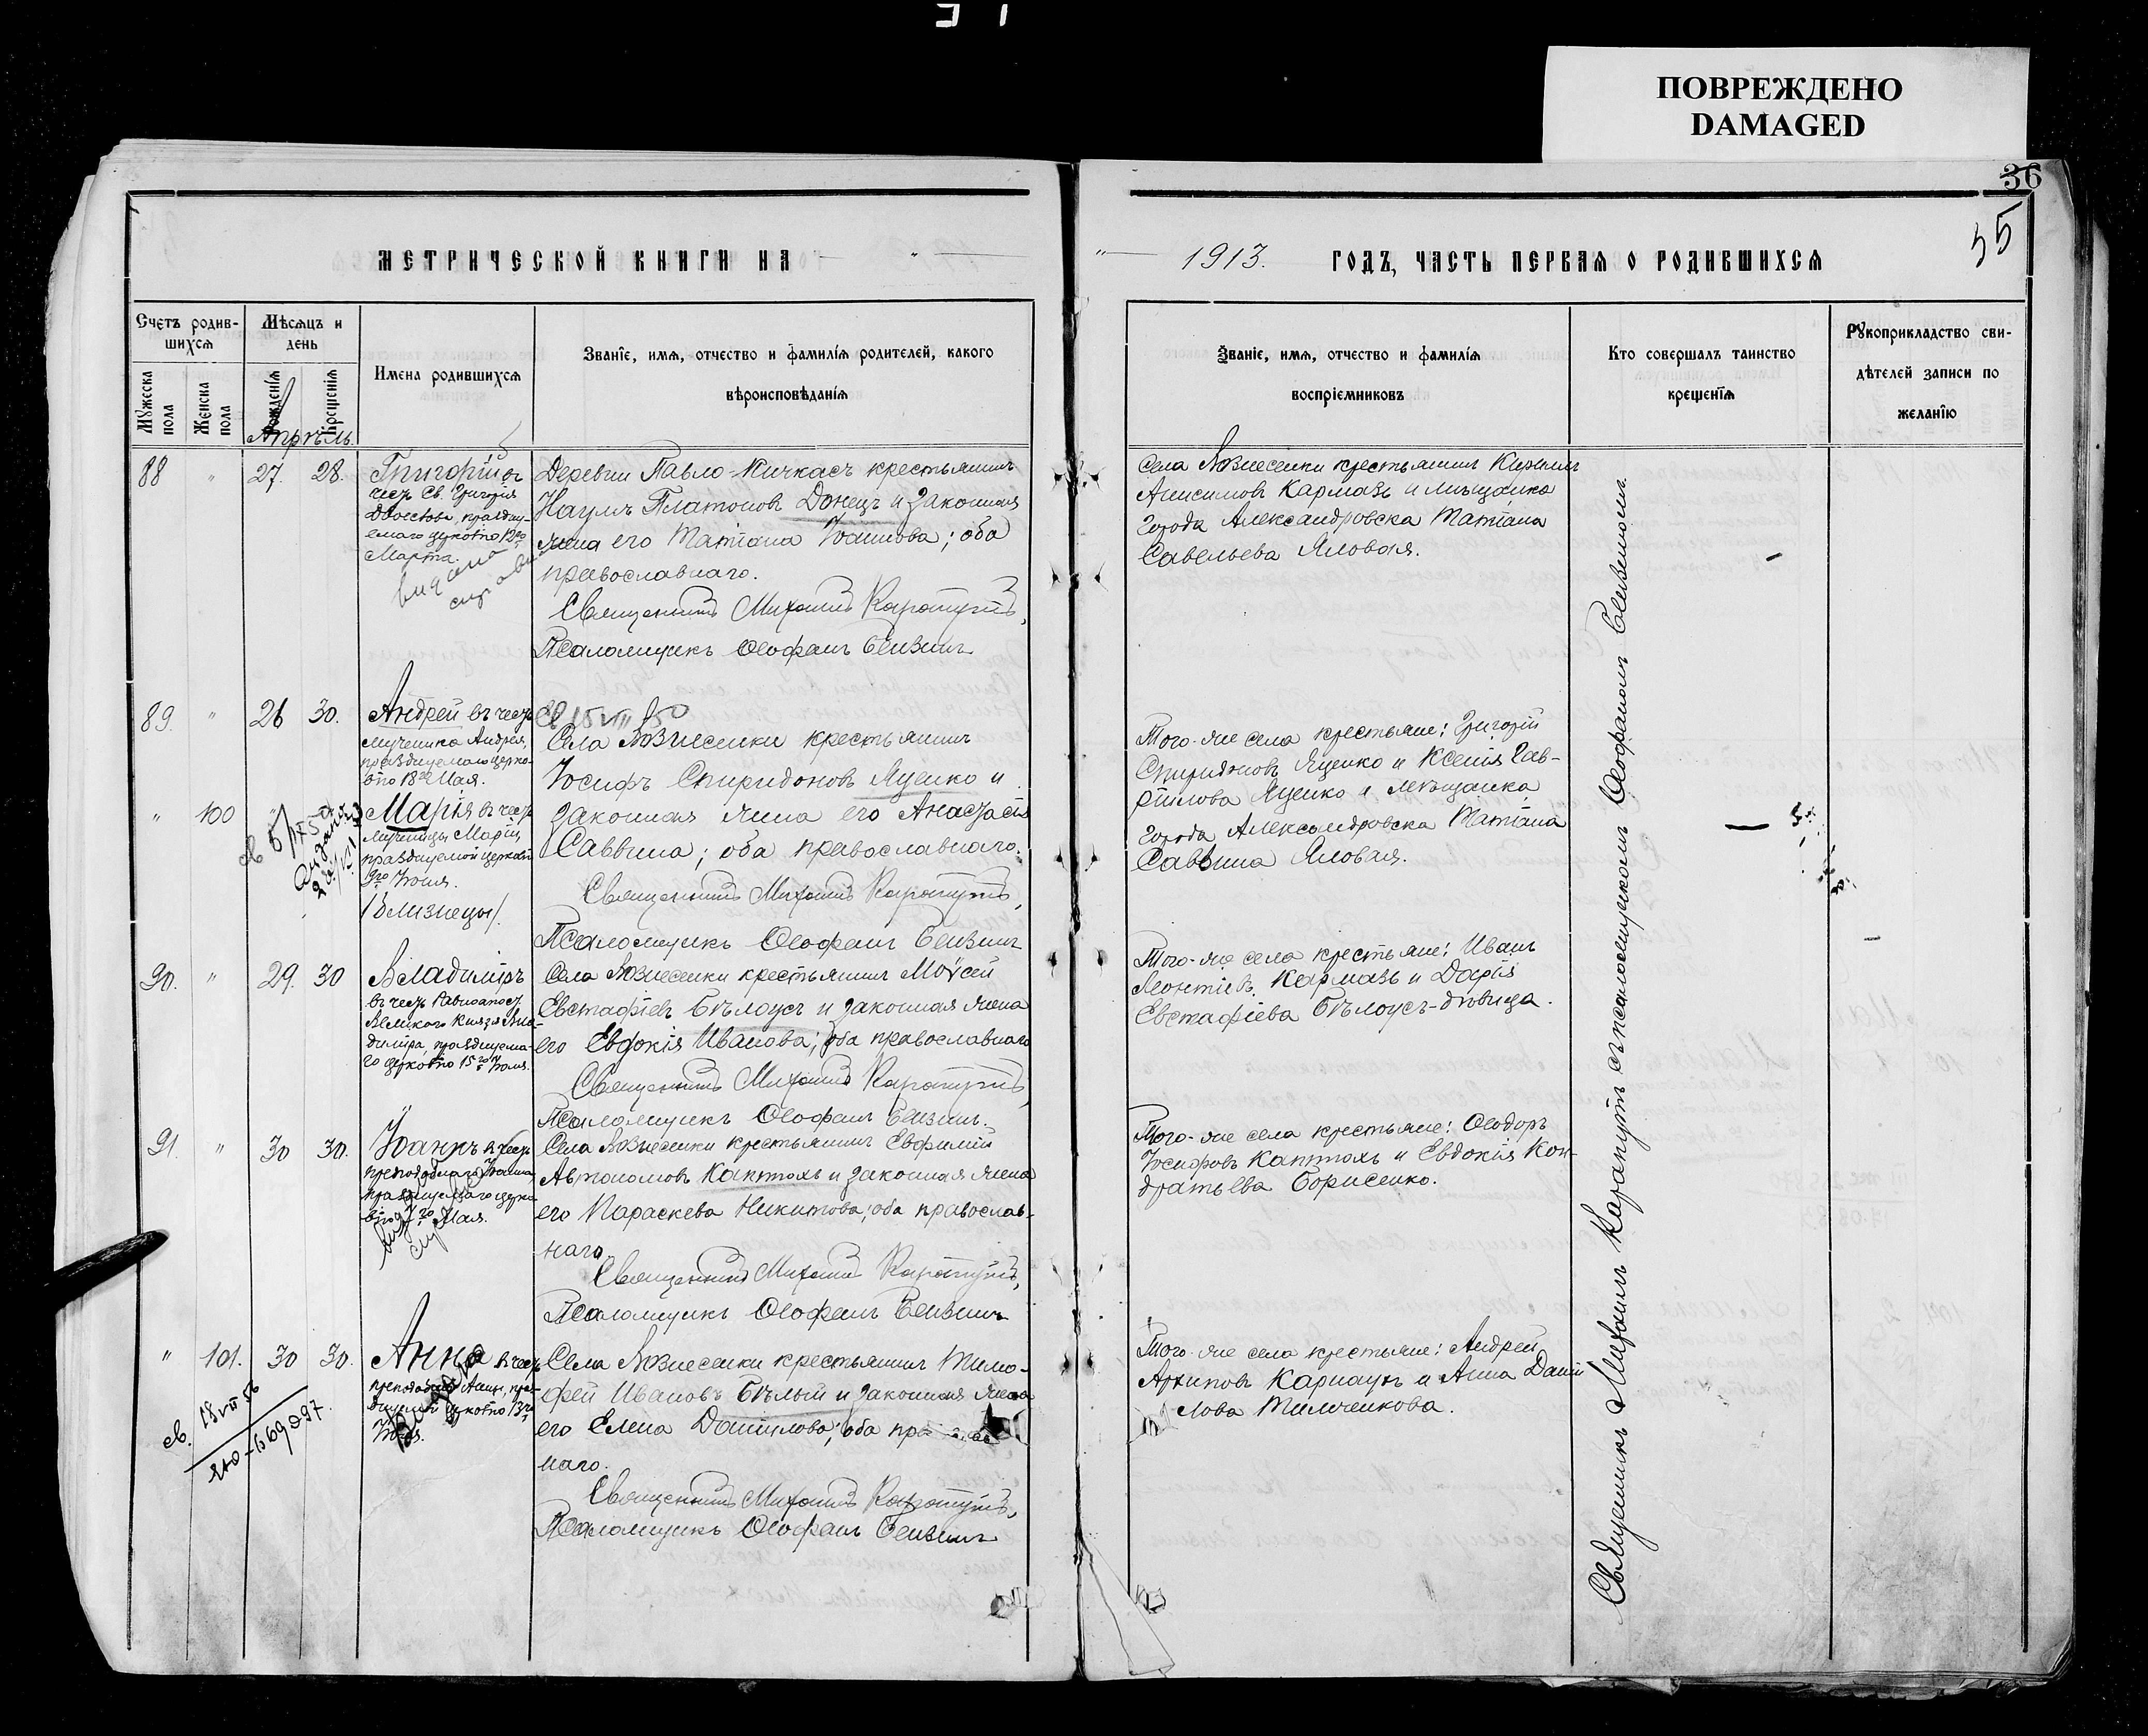 ПОВРЕЖДЕНО
DAMAGED
36
35
МЕТРИЧЕСКОЙ КНИГИ НА
1913. ГОДЪ, ЧАСТЬ ПЕРВАЯ О РОДИВШИХСЯ
Счетъ родив-
шихся
Мѣсяцъ и
день
Мужеска
пола
Женска
пола
Рожденія
Крещенія
Имена родившихся
Званіе, имя, отчество и фамилія родителей, какого
вѣроисповѣданія
Званіе, имя, отчество и фамилія
воспріемниковъ
Кто совершалъ таинство
крещенія
Рукоприкладство сви-
дѣтелей записи по
желанію
Апрѣль.
88 " 27. 28.
Григорій въ
честь Св. Григорія
Двоеслова, праздну-
емаго церковію 12го
Марта.
Деревни Павло-Кичкасъ крестьянинъ
Наумъ Платоновъ Донецъ и законная
жена его Татіана Іоаннова; оба
православнаго.
Священникъ Михаилъ Карапутъ,
Псаломщикъ Ѳеофанъ
Села Вознесенки крестьянинъ Кириллъ
Анисимовъ Кармазь и мѣщанка
города Александровска Татіана
Савельева Яловая.
89. " 26 30.
Андрей въ честь
мученика Андрея,
празднуемаго церко-
вію 18го Мая.
св 15 VIII 50
Села Вознесенки крестьянинъ
Іосифъ Спиридоновъ Яценко и
законная жена его Анастасія
Саввина; оба православнаго.
Священникъ Михаилъ Карапутъ,
Псаломщикъ Ѳеофанъ
" 100 "
Марія въ честь
мученицы Маріи,
празднуемой церковію
9го Іюня.
/Близнецы/.
Того-же села крестьяне: Григорій
Спиридоновъ Яценко и Ксенія Гав-
риилова Яценко и мѣщанка
города Александровска Татіана
Саввина Яловая.
90. " 29. 30
Владиміръ
въ честь Равноапост.
Великого Князя Вла-
диміра, празднуема-
го церковію 15го Іюля.
Села Вознесенки крестьянинъ Моѵсей
Евстафіевъ Бѣлоусъ и законная жена
его Евдокія Иванова; оба православнаго
Священникъ Михаилъ Карапутъ,
Псаломщикъ Ѳеофанъ
Того-же села крестьяне: Иванъ
Леонтіевъ Кармазь и Дарія
Евстафіева Бѣлоусъ-дѣвица.
91. " 30 30.
Іоаннъ въ честь
преподобнаго Іоанна,
празднуемаго церко-
вію Мая.
Села Вознесенки крестьянинъ Евфимій
Автономовъ Каптюхъ и законная жена
его Параскева Никитова; оба православ-
наго.
Священникъ Михаилъ Карапутъ,
Псаломщикъ Ѳеофанъ
Того-же села крестьяне: Ѳеодоръ
Іосифовъ Каптюхъ и Евдокія Кон-
дратьева Борисенко.
" 101. 30 30.
Анна въ честь
преподобной Анны, праз-
днуемой церковію 13го
св. 18 VII 56
Села Вознесенки крестьянинъ Тимо-
фей Ивановъ Бѣлый и законная жена
его Елена Даниилова; оба
наго.
Священникъ Михаилъ Карапутъ,
Псаломщикъ Ѳеофанъ
Того-же села крестьяне: Андрей
Архиповъ Карнаухъ и Анна Дании
лова Тимченкова.
Священникъ Михаилъ Карапутъ съ псаломщикомъ Ѳеофаномъ